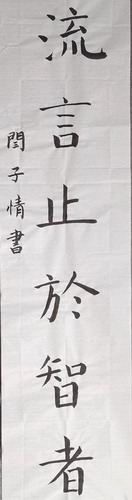 流言止於智者
閆子情書